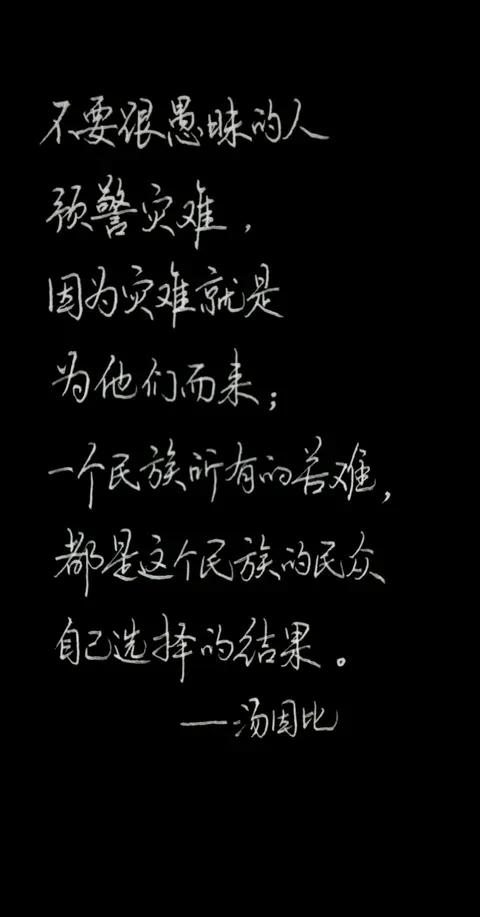 不要跟愚昧的人
预警灾难，
因为灾难就是
为他们而来；
一个民族所有的苦难，
都是这个民族的民众
自己选择的结果。
——汤因比